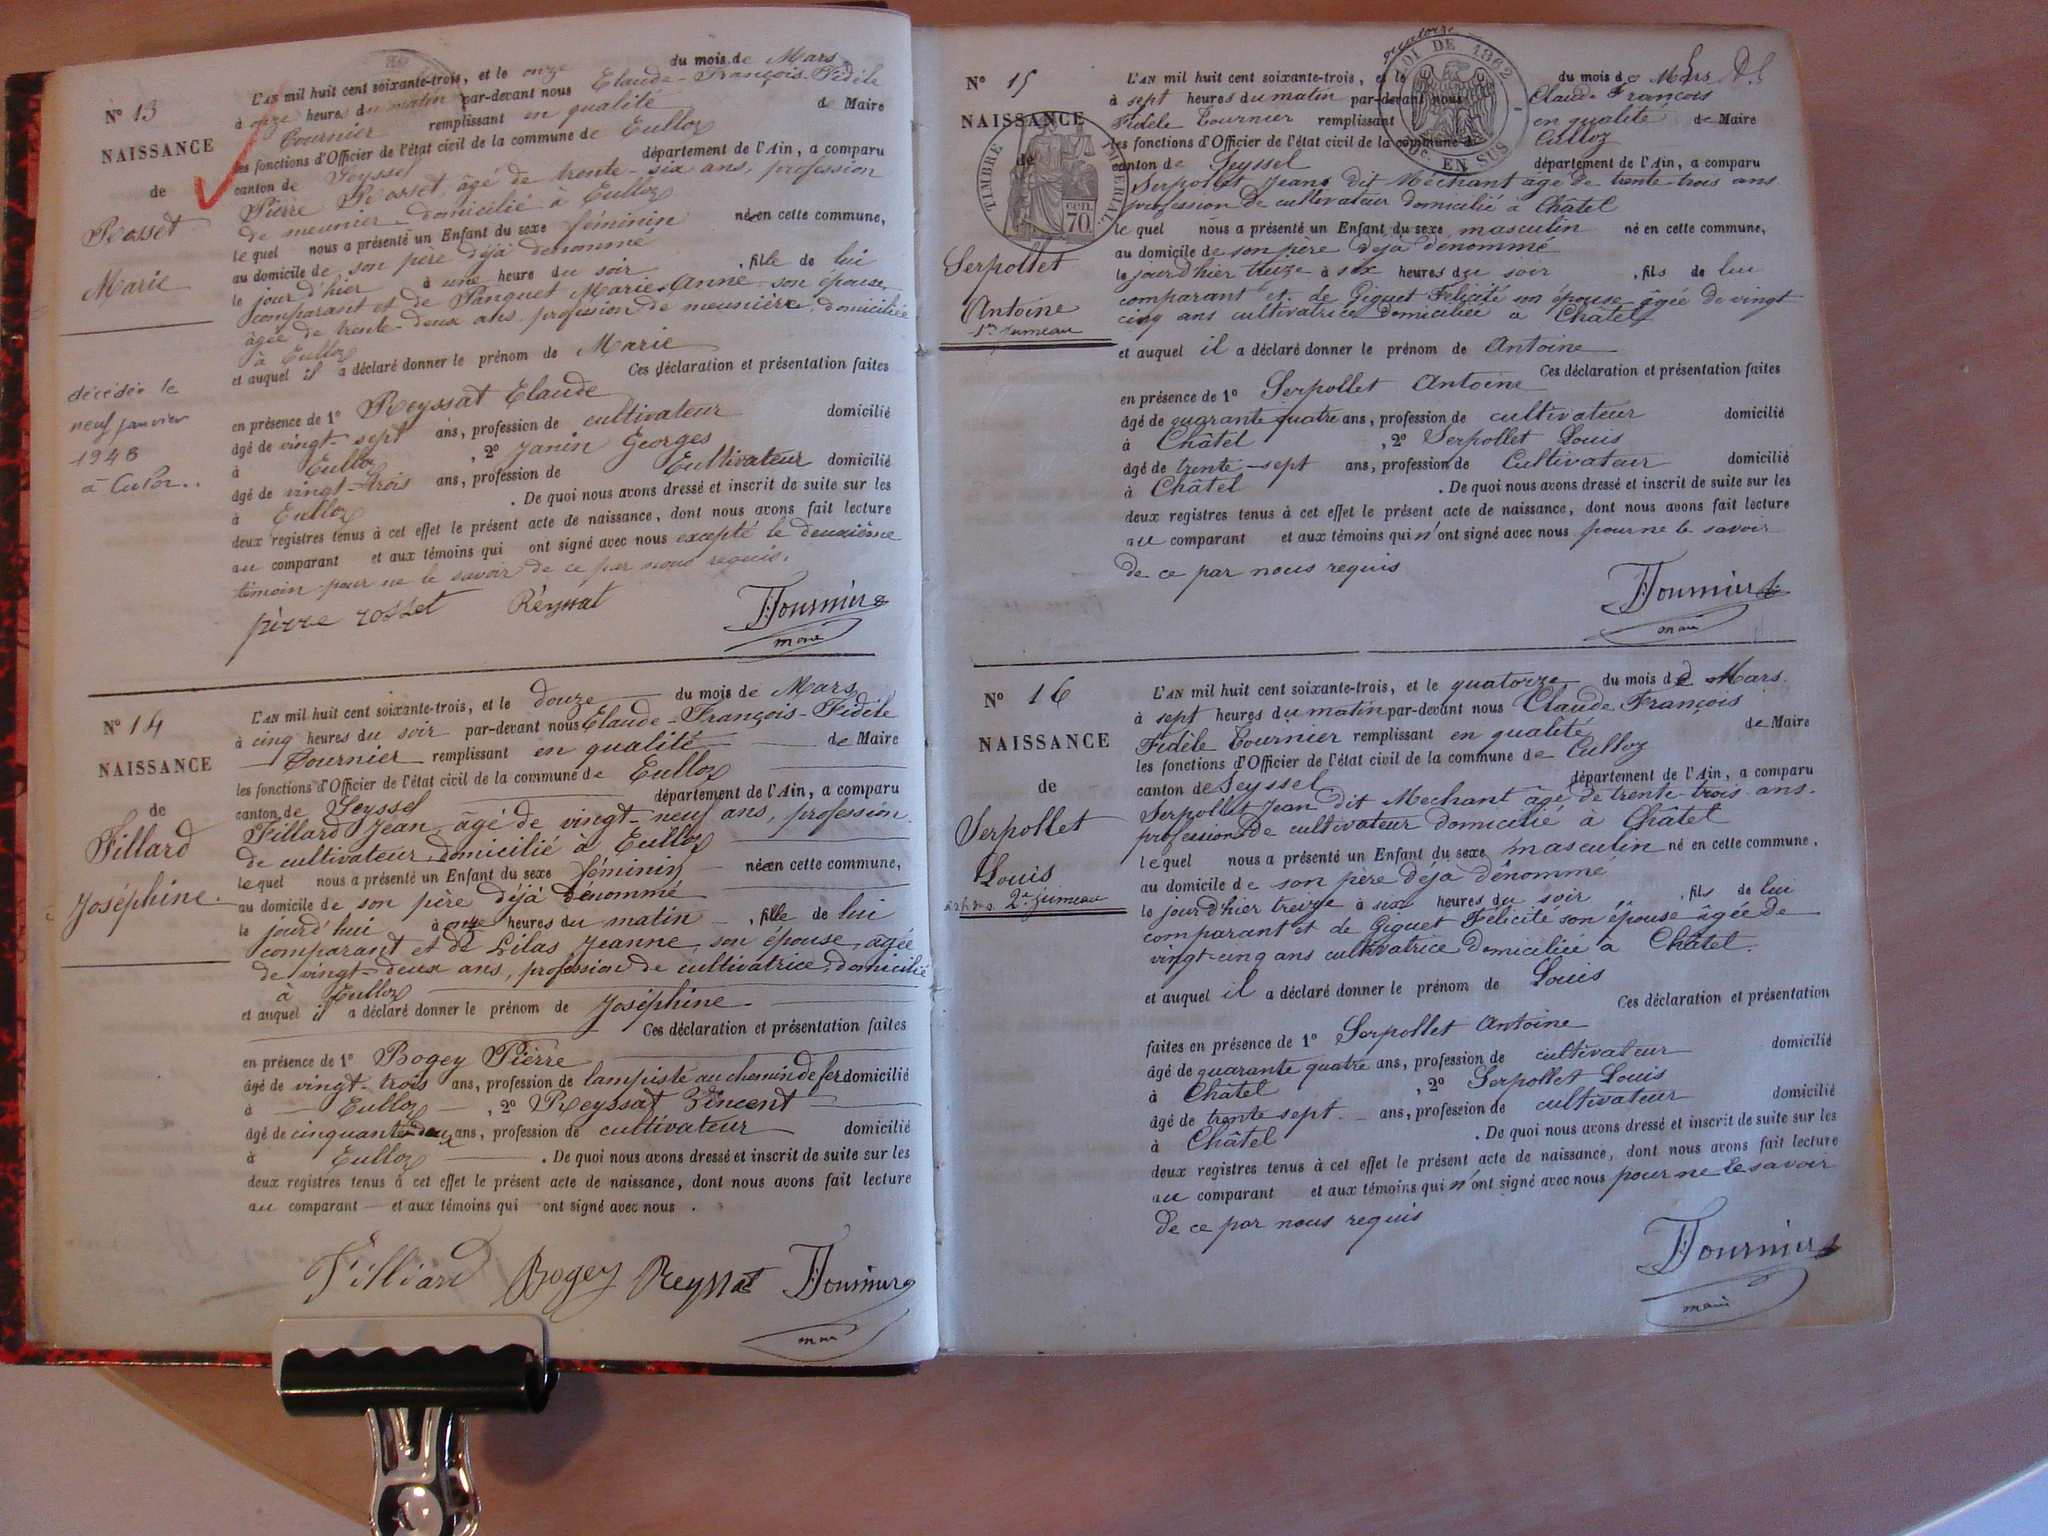 N° 13
NAISSANCE
de
Rosset
Marie
décédée le
neuf janvier
1948
à Culoz..
L'AN mil huit cent soixante-trois, et le onze du mois de Mars
à onze heures du matin par-devant nous Claude-François-Fidèle
Tournier remplissant en qualité de Maire
les fonctions d'Officier de l'état civil de la commune de Culloz
canton de Seyssel département de l'Ain, a comparu
Pierre Rosset, âgé de trente-six ans, profession
de meunier domicilié à Culloz
le quel nous a présenté un Enfant du sexe féminin née en cette commune,
au domicile de son père déjà dénommé
le jour d'hier à une heure du soir , fille de lui
comparant et de Panquet Marie-Anne son épouse
âgée de trente-deux ans profession de meunière, domiciliée
à Culloz
et auquel il a déclaré donner le prénom de Marie
Ces déclaration et présentation faites
en présence de 1° Reyssat Claude
âgé de vingt-sept ans, profession de cultivateur domicilié
à Culloz , 2° Janin Georges
âgé de vingt-trois ans, profession de Cultivateur domicilié
à Culloz . De quoi nous avons dressé et inscrit de suite sur les
deux registres tenus à cet effet le présent acte de naissance, dont nous avons fait lecture
au comparant et aux témoins qui ont signé avec nous excepté le deuxième
témoin pour ne le savoir de ce par nous requis.
pierre rosset Réyssat FTournier
maire
N° 14
NAISSANCE
de
Fillard
Joséphine
L'AN mil huit cent soixante-trois, et le douze du mois de Mars
à cinq heures du soir par-devant nous Claude-François-Fidèle
Tournier remplissant en qualité de Maire
les fonctions d'Officier de l'état civil de la commune de Culloz
canton de Seyssel département de l'Ain, a comparu
Fillard Jean, âgé de vingt-neuf ans, profession
de cultivateur domicilié à Culloz
le quel nous a présenté un Enfant du sexe féminin née en cette commune,
au domicile de son père déjà dénommé
le jourd'hui à onze heures du matin , fille de lui
comparant et de Lilas Jeanne, son épouse, âgée
de vingt-deux ans, profession de cultivatrice, domicilié
à Culloz
et auquel il a déclaré donner le prénom de Joséphine
Ces déclaration et présentation faites
en présence de 1° Bogey Pierre
âgé de vingt-trois ans, profession de lampiste au chemin de fer domicilié
à Culloz , 2° Reyssat Vincent
âgé de cinquante-deux ans, profession de cultivateur domicilié
à Culloz . De quoi nous avons dressé et inscrit de suite sur les
deux registres tenus à cet effet le présent acte de naissance, dont nous avons fait lecture
au comparant et aux témoins qui ont signé avec nous .
Filliard Bogey Reyssat FTournier
maire
N° 15
NAISSANCE
de
Serpollet
Antoine
1er Jumeau
TIMBRE IMPERIAL
70 cen.
LOI DE 1862
2e. EN SUS
L'AN mil huit cent soixante-trois, et le quatorze du mois de Mars
à sept heures du matin par-devant nous Claude François
Fidèle Tournier remplissant en qualité de Maire
les fonctions d'Officier de l'état civil de la commune de Culloz
canton de Seyssel département de l'Ain, a comparu
Serpollet Jean dit Méchant âgé de trente-trois ans
profession de cultivateur domicilié à Châtel
le quel nous a présenté un Enfant du sexe masculin né en cette commune,
au domicile de son père déjà dénommé
le jourd'hier treize à six heures du soir , fils de lui
comparant et de Giguet Félicité son épouse âgée de vingt
cinq ans cultivatrice domiciliée à Châtel
et auquel il a déclaré donner le prénom de Antoine
Ces déclaration et présentation faites
en présence de 1° Serpollet Antoine
âgé de quarante quatre ans, profession de cultivateur domicilié
à Châtel , 2° Serpollet Louis
âgé de trente-sept ans, profession de Cultivateur domicilié
à Châtel . De quoi nous avons dressé et inscrit de suite sur les
deux registres tenus à cet effet le présent acte de naissance, dont nous avons fait lecture
au comparant et aux témoins qui n'ont signé avec nous pour ne le savoir
de ce par nous requis
FTournier
maire
N° 16
NAISSANCE
de
Serpollet
Louis
2e jumeau
L'AN mil huit cent soixante-trois, et le quatorze du mois de Mars.
à sept heures du matin par-devant nous Claude François
Fidèle Tournier remplissant en qualité de Maire
les fonctions d'Officier de l'état civil de la commune de Culloz
canton de Seyssel département de l'Ain, a comparu
Serpollet Jean dit Mechant âgé de trente-trois ans.
profession de cultivateur domicilié à Châtel
le quel nous a présenté un Enfant du sexe masculin né en cette commune,
au domicile de son père déjà dénommé
le jourd'hier treize à six heures du soir , fils de lui
comparant et de Giguet Félicité son épouse âgée de
vingt-cinq ans cultivatrice domiciliée à Châtel.
et auquel il a déclaré donner le prénom de Louis
Ces déclaration et présentation
faites en présence de 1° Serpollet Antoine
âgé de quarante quatre ans, profession de cultivateur domicilié
à Châtel , 2° Serpollet Louis
âgé de trente sept ans, profession de cultivateur domicilié
à Châtel . De quoi nous avons dressé et inscrit de suite sur les
deux registres tenus à cet effet le présent acte de naissance, dont nous avons fait lecture
au comparant et aux témoins qui n'ont signé avec nous pour ne le savoir
de ce par nous requis
FTournier
maire